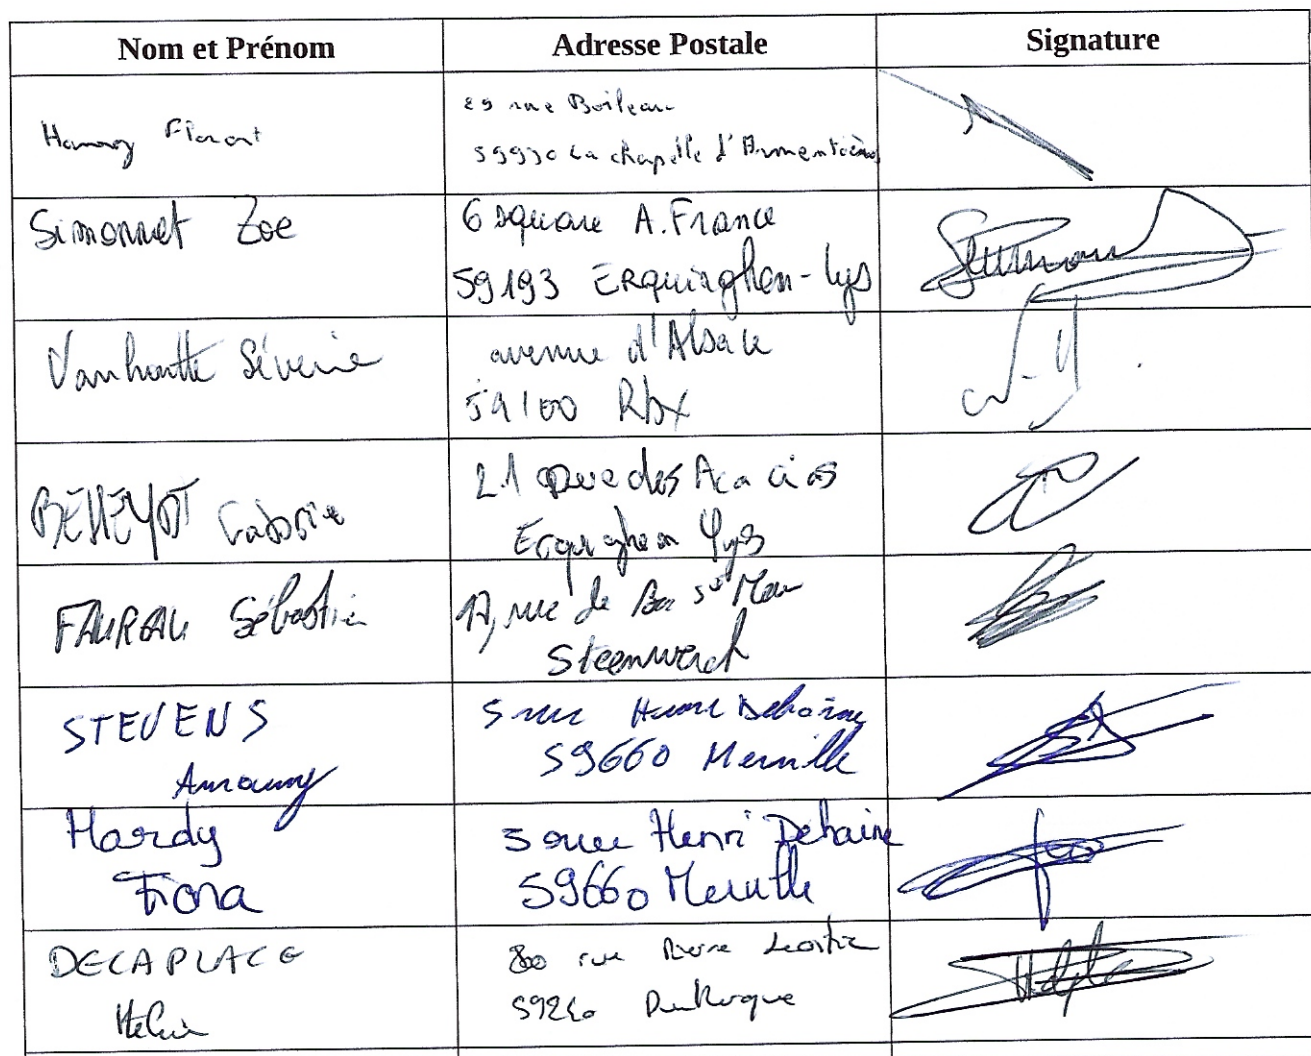 Nom et Prénom
Adresse Postale
Signature
Florent
29 rue Boileau
59930 La chapelle d'Armentières
Simonnet Zoe
6 square A. France
59193 Erquinghem-Lys
Vanhoutte Séverine
avenue d'Alsace
59100 Rbx
Fabrice
21 rue des Acacias
Erquinghem Lys
Sébastien
17, rue de
Steenwerck
STEVENS
Amaury
5 rue Henri Dehaine
59660 Merville
Hardy
Fiona
5 rue Henri Dehaine
59660 Merville
DECAPLACE
80 rue Pierre
Dunkerque